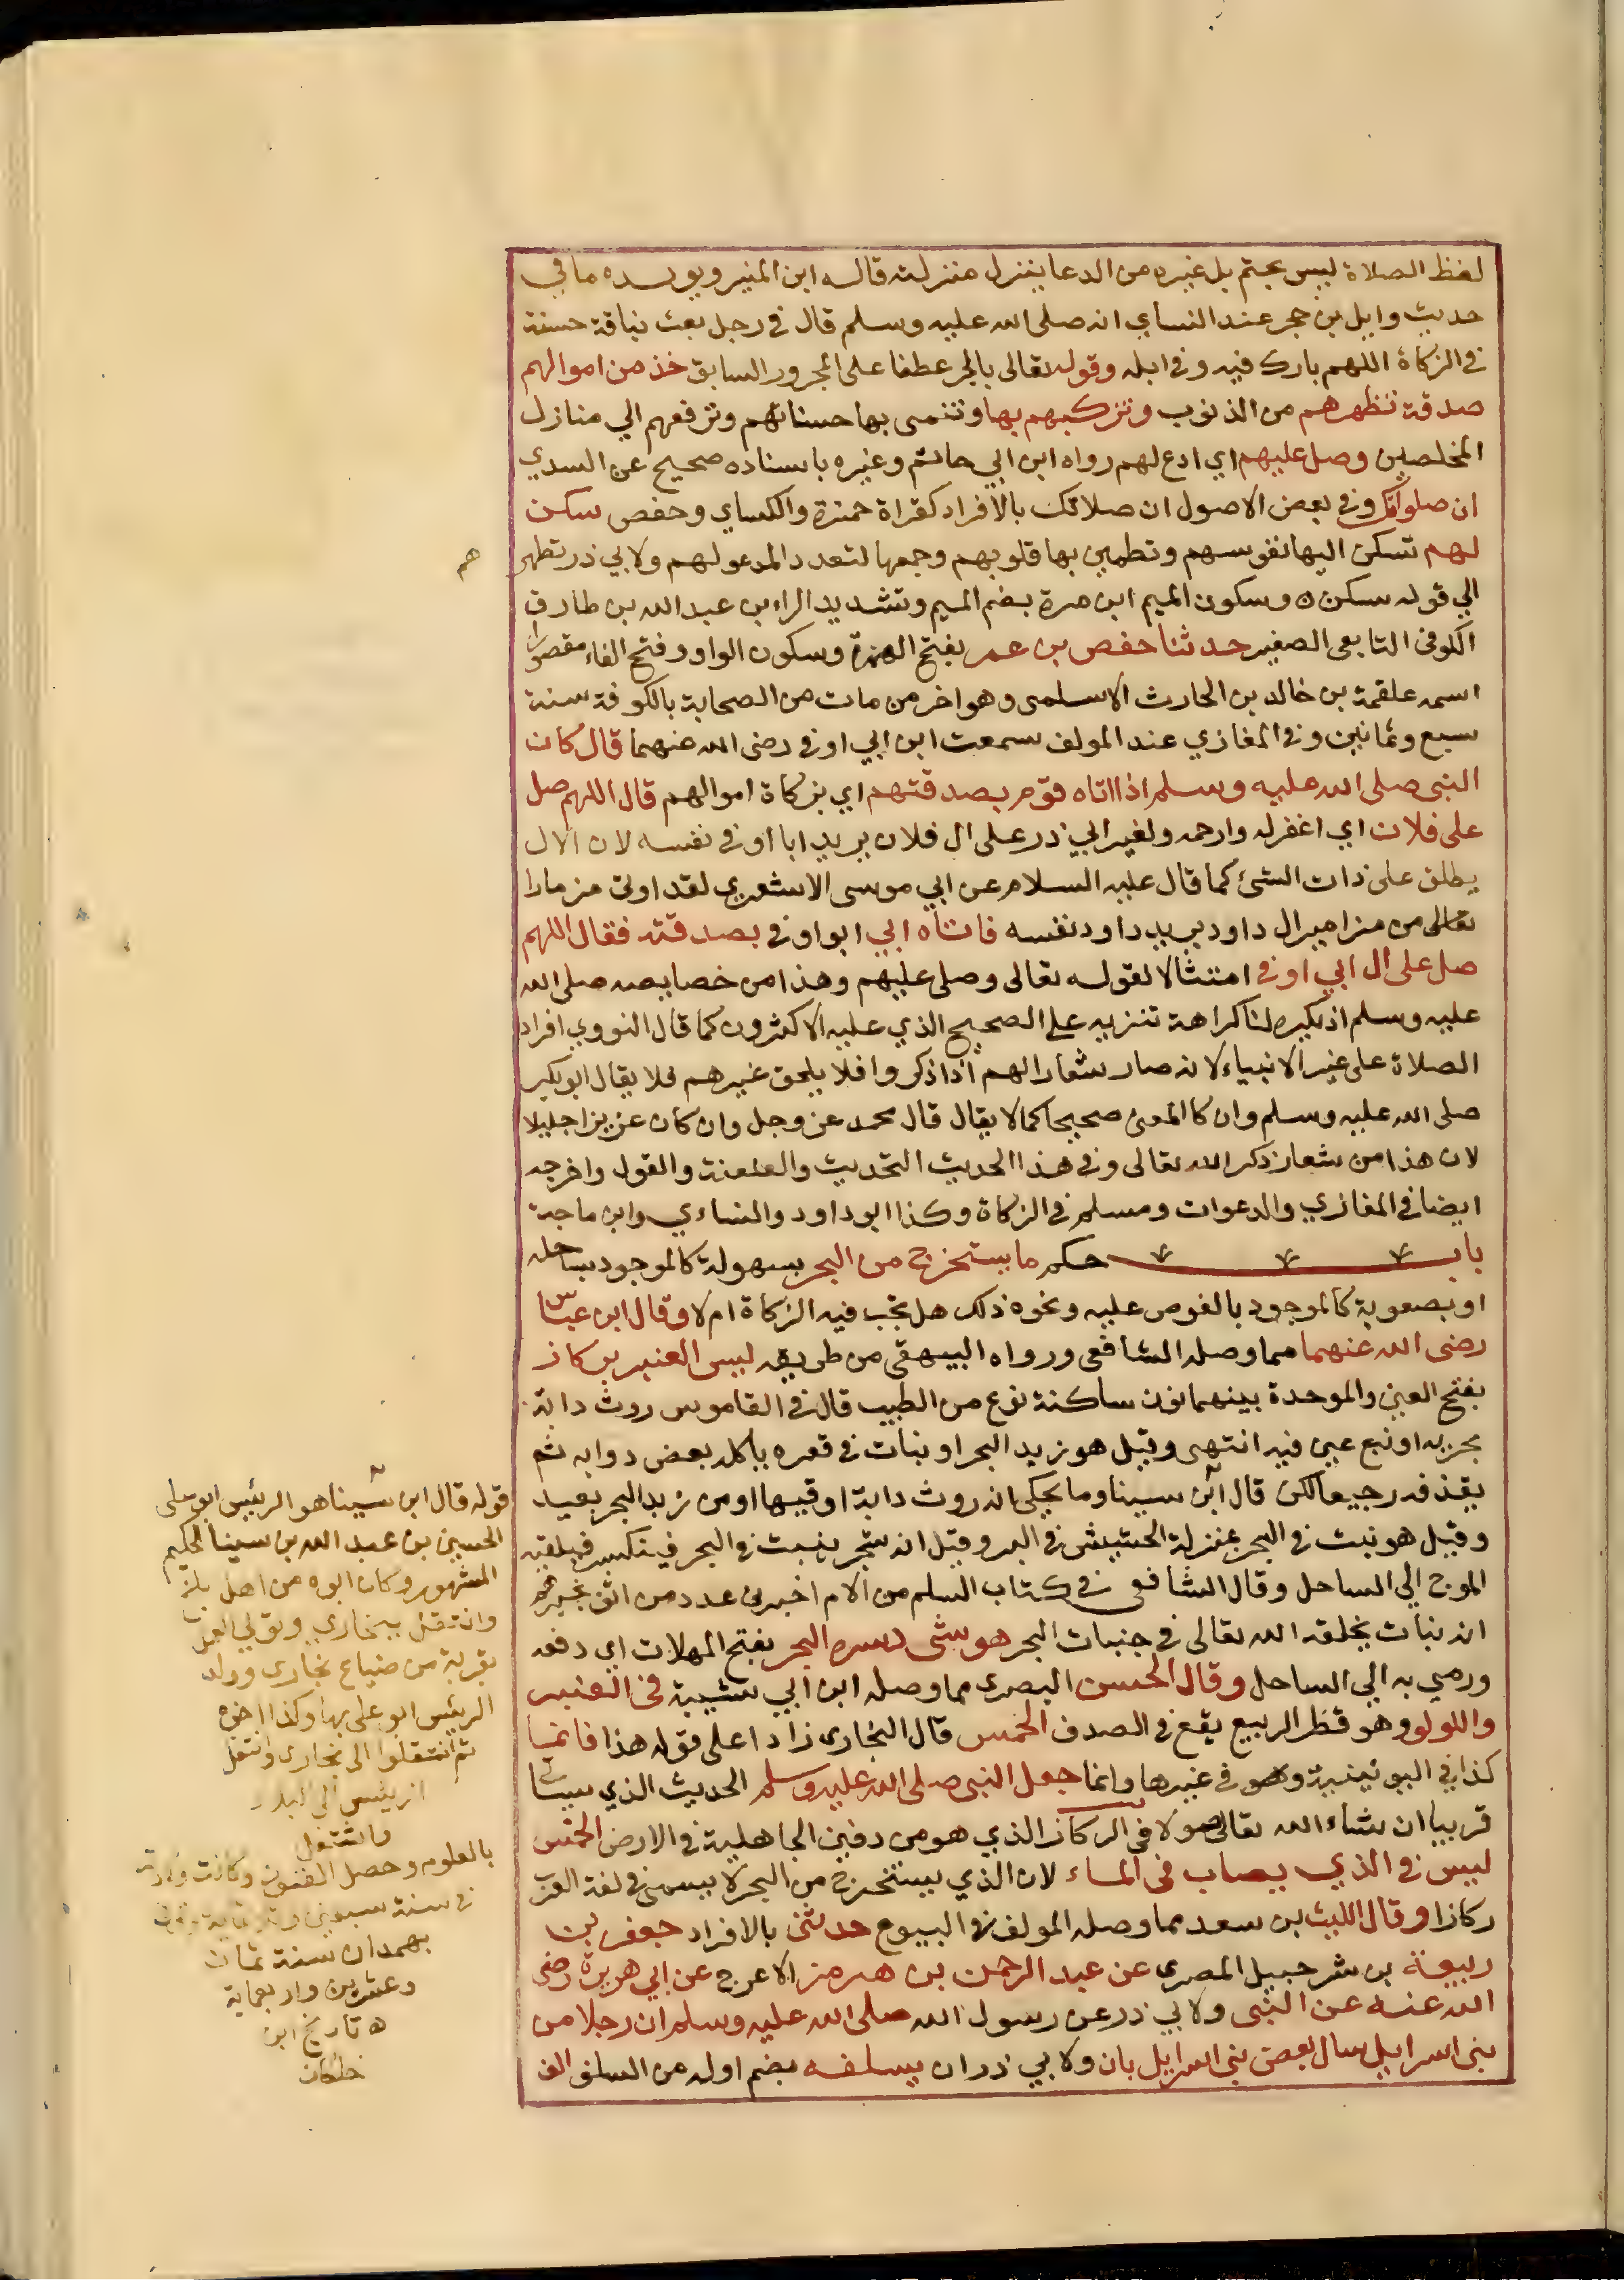 لفظ الصلاة ليس بحتم بل غيره من الدعا ينزل منزلته قاله ابن المنير ويويده ما في
حديث وايل بن حجر عند النساي انه صلى الله عليه وسلم قال في رجل بعث بناقة حسنة
في الزكاة اللهم بارك فيه وفي ابله وقوله تعالى بالجر عطفا على المجرور السابق خذ من اموالهم
صدقة تطهرهم من الذنوب وتزكيهم بها وتنمى بها حسناتهم وترفعهم الي منازل
المخلصين وصل عليهم اي ادع لهم رواه ابن ابي حاتم وغيره باسناده صحيح عن السدي
ان صلواتك وفي بعض الاصول ان صلاتك بالافراد كقراة حمزة والكساي وحفص سكن
لهم تسكن اليها نفوسهم وتطمين بها قلوبهم وجمعها لتعدد المدعو لهم ولابي ذر تطهر
هم
الي قوله سكن ه وسكون الميم ابن مرة بضم الميم وتشديد الراء بن عبد الله بن طارق
الكوفي التابعى الصغير حدثنا حفص بن عمر بفتح الهمزة وسكون الواو وفتح الفاء مقصورا
اسمه علقمة بن خالد بن الحارث الاسلمى وهو اخر من مات من الصحابة بالكوفة سنة
سبع وثمانين وفي المغازي عند المولف سمعت ابن ابي اوفي رضى الله عنهما قال كان
النبى صلى الله عليه وسلم اذا اتاه قوم بصدقتهم اي بزكاة اموالهم قال اللهم صل
على فلان اي اغفر له وارحمه ولغير ابي ذر على ال فلان يريد ابا اوفي نفسه لان الال
يطلق على ذات الشئ كما قال عليه السلام عن ابي موسى الاشعري لقد اوتى مزمارا
تعالى من مزامير ال داود يريد داود نفسه فاتاه ابي ابو اوفي بصدقته فقال اللهم
صل على ال ابي اوفي امتثالا لقوله تعالى وصلى عليهم وهذا من خصايصه صلى الله
عليه وسلم اذ يكره لنا كراهة تنزيه على الصحيح الذي عليه الاكثرون كما قال النووي افراد
الصلاة على غير الانبياء لانه صار شعارا لهم اذا ذكروا فلا يلحق غيرهم فلا يقال ابو بكر
صلى الله عليه وسلم وان كا المعنى صحيحا كما لا يقال قال محمد عز وجل وان كان عزيزا جليلا
لان هذا من شعار ذكر الله تعالى وفي هذا الحديث التحديث والعنعنة والقول واخرجه
ايضا في المغازي والدعوات ومسلم في الزكاة وكذا ابو داود والنساءي وابن ماجة
باب حكم ما يستخرج من البحر بسهولة كالموجود بساحله
او بصعوبة كالموجود بالغوص عليه ونحوه ذلك هل تجب فيه الزكاة ام لا وقال ابن عباس
رضى الله عنهما مما وصله الشافعى ورواه البيهقى من طريقه ليس العنبر بركاز
بفتح العين والموحدة بينهما نون ساكنة نوع من الطيب قال في القاموس روث دابة
بحرية او نبع عين فيه انتهى وقيل هو زبد البحر او نبات في قعره ياكله بعض دوابه ثم
يقذفه رجيعا لكن قال ابن سينا وما يحكى انه روث دابة او قيها او من زبد البحر بعيد
وقيل هو نبت في البحر بمنزلة الحشيش في البر وقيل انه شجر ينبت في البحر فيتكسر فيلقيه
الموج الي الساحل وقال الشافعى في كتاب السلم من الام اخبرنى عدد من اثق بخبره
انه نبات يخلقه الله تعالى في جنبات البحر هو شى دسره البحر بفتح المهلات اي دفعه
ورمي به الي الساحل وقال الحسن البصرى مما وصله ابن ابي شيبة في العنبر
واللولو وهو قطر الربيع يقع في الصدف الخمس قال البخارى زادا على قوله هذا فانما
كذا في اليونينية وهو في غيرها وانما جعل النبى صلى الله عليه وسلم الحديث الذي سياتي
قريبا ان شاء الله تعالى موصولا في الركاز الذي هو من دفين الجاهلية في الارض الخمس
ليس في الذي يصاب في الماء لان الذي يستخرج من البحر لا يسمى في لغة العرب
ركازا وقال الليث بن سعد مما وصله المولف في البيوع حدثنى بالافراد جعفر بن
ربيعة بن شرحبيل المصرى عن عبد الرحمن بن هرمز الاعرج عن ابي هريرة رضى
الله عنه عن النبى ولابي ذر عن رسول الله صلى الله عليه وسلم ان رجلا من
بنى اسرايل سال بعض بنى اسرايل بان ولابي ذر ان يسلفه بضم اوله من السلف الف
قوله قال ابن سينا هو الرئيس ابو على
الحسين بن عبد الله بن سينا الحكيم
المشهور وكان ابوه من اهل بلخ
وانتقل ببخاري وتولي العمل
بقرية من ضياع بخارى وولد
الرئيس ابو على بها وكذا اخوه
ثم انتقلوا الى بخارى وانتقل
الرئيس الي البلاد
واشتغل
بالعلوم وحصل الفنون وكانت ولادته
في سنة سبعين وثلاثماية وتوفي
بهمدان سنة ثمان
وعشرين واربعماية
ه تاريخ ابن
خلكان